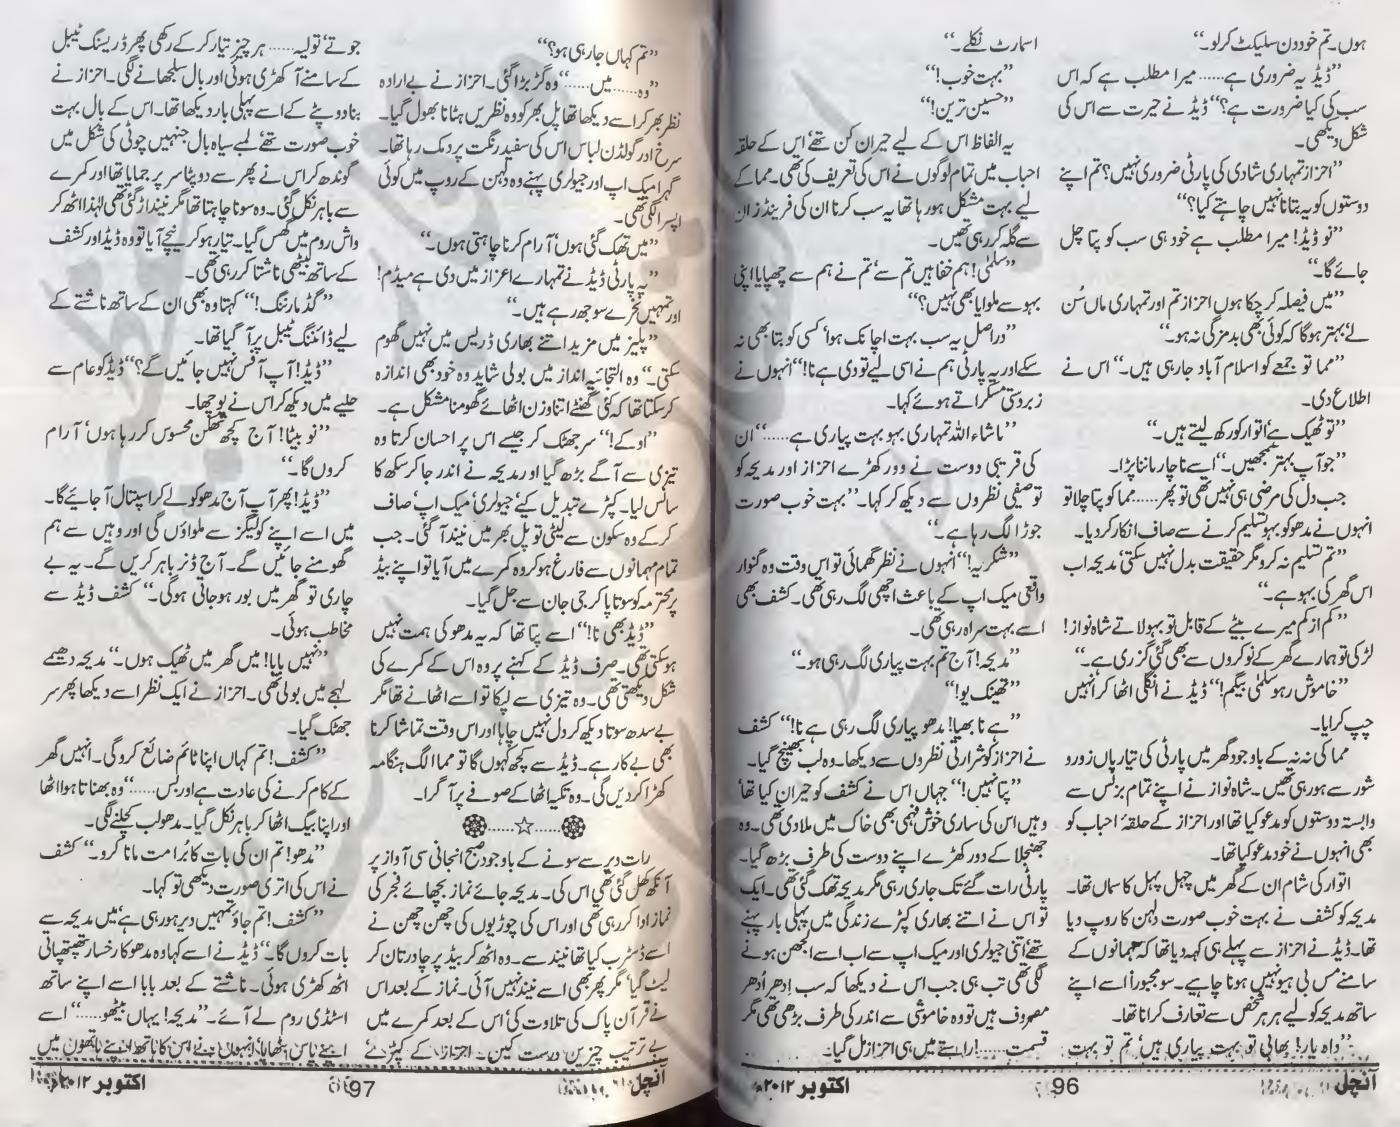 ہوں۔ تم خود دن سلیکٹ کرلو۔‘‘
’’ڈیڈ یہ ضروری ہے...... میرا مطلب ہے کہ اس
سب کی کیا ضرورت ہے؟‘‘ ڈیڈ نے حیرت سے اس کی
شکل دیکھی۔
’’احزاز تمہاری شادی کی پارٹی ضروری نہیں؟ تم اپنے
دوستوں کو یہ بتانا نہیں چاہتے کیا؟‘‘
’’نو ڈیڈ! میرا مطلب ہے خود ہی سب کو پتا چل
جائے گا۔‘‘
’’میں فیصلہ کرچکا ہوں احزاز تم اور تمہاری ماں سُن
لے‘ بہتر ہوگا کہ کوئی بھی بدمزگی نہ ہو۔‘‘
’’مما تو جمعے کو اسلام آباد جارہی ہیں۔‘‘ اس نے
اطلاع دی۔
’’تو ٹھیک ہے‘ اتوار کو رکھ لیتے ہیں۔‘‘
’’جو آپ بہتر سمجھیں۔‘‘ اسے ناچار ماننا پڑا۔
جب دل کی مرضی ہی نہیں تھی تو پھر...... مما کو پتا چلا تو
انہوں نے مدھو کو بہو تسلیم کرنے سے صاف انکار کردیا۔
’’تم تسلیم نہ کرو مگر حقیقت بدل نہیں سکتی‘ مدیحہ اب
اس گھر کی بہو ہے۔‘‘
’’کم از کم میرے بیٹے کے قابل تو بہو لاتے شاہ نواز!
لڑکی تو ہمارے گھر کے نوکروں سے بھی گئی گزری ہے۔‘‘
’’خاموش رہو سلمٰی بیگم!‘‘ ڈیڈ نے انگلی اٹھا کر انہیں
چپ کرایا۔
مما کی نہ نہ کے باوجود گھر میں پارٹی کی تیاریاں زورو
شور سے ہورہی تھیں۔ شاہ نواز نے اپنے تمام بزنس سے
وابستہ دوستوں کو مدعو کیا تھا اور احزاز کے حلقۂ احباب کو
بھی انہوں نے خود مدعو کیا تھا۔
اتوار کی شام ان کے گھر میں چہل پہل کا سماں تھا۔
مدیحہ کو کشف نے بہت خوب صورت دلہن کا روپ دیا
تھا۔ ڈیڈ نے احزاز سے پہلے ہی کہہ دیا تھا کہ مہمانوں کے
سامنے مس بی ہیو نہیں ہونا چاہیے۔ سو مجبوراً اسے اپنے
ساتھ مدیحہ کو لیے ہر ہر شخص سے تعارف کرانا تھا۔
’’واہ یار! بھابی تو بہت پیاری ہیں‘ تم تو بہت
اسمارٹ نکلے۔‘‘
’’بہت خوب!‘‘
’’حسین ترین!‘‘
یہ الفاظ اس کے لیے حیران کن تھے‘ اس کے حلقہ
احباب میں تمام لوگوں نے اس کی تعریف کی تھی۔ مما کے
لیے بہت مشکل ہورہا تھا یہ سب کرنا ان کی فرینڈز ان
سے گلہ کررہی تھیں۔
’’سلمٰی! ہم خفا ہیں تم سے‘ تم نے ہم سے چھپایا اپنی
بہو سے ملوایا بھی نہیں؟‘‘
’’دراصل یہ سب بہت اچانک ہوا‘ کسی کو بتا بھی نہ
سکے اور یہ پارٹی ہم نے اسی لیے تو دی ہے نا!‘‘ انہوں نے
زبردستی مسکراتے ہوئے کہا۔
’’ماشاء اللہ تمہاری بہو بہت پیاری ہے......‘‘ ان
کی قریبی دوست نے دور کھڑے احزاز اور مدیحہ کو
توصیفی نظروں سے دیکھ کر کہا۔ ’’بہت خوب صورت
جوڑا لگ رہا ہے۔‘‘
’’شکریہ!‘‘ انہوں نے نظر گھمائی تو اس وقت وہ گنوار
واقعی میک اپ کے باعث اچھی لگ رہی تھی۔ کشف بھی
اسے بہت سراہ رہی تھی۔
’’مدیحہ! آج تم بہت پیاری لگ رہی ہو۔‘‘
’’تھینک یو!‘‘
’’ہے نا بھیا! مدھو پیاری لگ رہی ہے نا!‘‘ کشف
نے احزاز کو شرارتی نظروں سے دیکھا۔ وہ لب بھینچ گیا۔
’’پتا نہیں!‘‘ جہاں اس نے کشف کو حیران کیا تھا
وہیں اس کی ساری خوش فہمی بھی خاک میں ملادی تھی۔ وہ
جھنجلا کے دور کھڑے اپنے دوست کی طرف بڑھ گیا۔
پارٹی رات گئے تک جاری رہی مگر مدیحہ تھک گئی تھی۔ ایک
تو اس نے اتنے بھاری کپڑے زندگی میں پہلی بار پہنے
تھے‘ اتنی جیولری اور میک اپ سے اب اسے الجھن ہونے
لگی تھی تب ہی جب اس نے دیکھا کہ سب اِدھر اُدھر
مصروف ہیں تو وہ خاموشی سے اندر کی طرف بڑھی تھی مگر
قسمت......! راستے میں ہی احزاز مل گیا۔
آنچل
96
اکتوبر ۲۰۱۲ء
’’تم کہاں جارہی ہو؟‘‘
’’وہ...... میں......‘‘ وہ گڑبڑا گئی۔ احزاز نے بے ارادہ
نظر بھر کر اسے دیکھا تھا پل بھر کو وہ نظریں ہٹانا بھول گیا۔
سرخ اور گولڈن لباس اس کی سفید رنگت پر دمک رہا تھا۔
گہرا میک اپ اور جیولری پہنے وہ دلہن کے روپ میں کوئی
اپسرا لگی تھی۔
’’میں تھک گئی ہوں‘ آرام کرنا چاہتی ہوں۔‘‘
’’یہ پارٹی ڈیڈ نے تمہارے اعزاز میں دی ہے میڈم!
اور تمہیں نخرے سوجھ رہے ہیں۔‘‘
’’پلیز میں مزید اتنے بھاری ڈریس میں نہیں گھوم
سکتی۔‘‘ وہ التجائیہ انداز میں بولی شاید وہ خود بھی اندازہ
کرسکتا تھا کہ کئی گھنٹے اتنا وزن اٹھائے گھومنا مشکل ہے۔
’’اوکے!‘‘ سر جھٹک کر جیسے اس پر احسان کرتا وہ
تیزی سے آگے بڑھ گیا اور مدیحہ نے اندر جا کر سکھ کا
سانس لیا۔ کپڑے تبدیل کیے‘ جیولری‘ میک اپ صاف
کرکے وہ سکون سے لیٹی تو پل بھر میں نیند آگئی۔ جب
تمام مہمانوں سے فارغ ہوکر وہ کمرے میں آیا تو اپنے بیڈ
پر محترمہ کو سوتا پا کر جی جان سے جل گیا۔
’’ڈیڈ بھی نا!‘‘ اسے پتا تھا کہ یہ مدھو کی ہمت نہیں
ہوسکتی تھی۔ صرف ڈیڈ کے کہنے پر وہ اس کے کمرے کی
شکل دیکھتی تھی۔ وہ تیزی سے لپکا تو اسے اٹھانے تھا مگر
بے سدھ سوتا دیکھ کر دل نہیں چاہا اور اس وقت تماشا کرنا
بھی بے کار ہے۔ ڈیڈ سے کچھ کہوں گا تو مما الگ ہنگامہ
کھڑا کردیں گی۔ وہ تکیہ اٹھا کے صوفے پر آگرا۔
......☆......
رات دیر سے سونے کے باوجود صبح انجانی سی آواز پر
آنکھ کھل گئی تھی اس کی۔ مدیحہ جائے نماز بچھائے فجر کی
نماز ادا کررہی تھی اور اس کی چوڑیوں کی چھن چھن نے
اسے ڈسٹرب کیا تھا نیند سے۔ وہ اٹھ کر بیڈ پر چادر تان کر
لیٹ گیا‘ مگر پھر بھی اسے نیند نہیں آئی۔ نماز کے بعد اس
نے قرآن پاک کی تلاوت کی‘ اس کے بعد کمرے میں
بے ترتیب چیزیں درست کیں۔ احزاز کے کپڑے
جوتے‘ تولیہ...... ہر چیز تیار کرکے رکھی پھر ڈریسنگ ٹیبل
کے سامنے آ کھڑی ہوئی اور بال سلجھانے لگی۔ احزاز نے
بنا دوپٹے کے اسے پہلی بار دیکھا تھا۔ اس کے بال بہت
خوب صورت تھے‘ لمبے سیاہ بال جنہیں چوٹی کی شکل میں
گوندھ کر اس نے پھر سے دوپٹا سر پر جمایا تھا اور کمرے
سے باہر نکل گئی۔ وہ سونا چاہتا تھا مگر نیند اڑ گئی تھی لہٰذا اٹھ کر
واش روم میں گھس گیا۔ تیار ہوکر نیچے آیا تو وہ ڈیڈ اور کشف
کے ساتھ بیٹھی ناشتا کررہی تھی۔
’’گڈ مارننگ!‘‘ کہتا وہ بھی ان کے ساتھ ناشتے کے
لیے ڈائننگ ٹیبل پر آگیا تھا۔
’’ڈیڈ! آپ آفس نہیں جائیں گے؟‘‘ ڈیڈ کو عام سے
حلیے میں دیکھ کر اس نے پوچھا۔
’’نو بیٹا! آج کچھ تھکن محسوس کررہا ہوں‘ آرام
کروں گا۔‘‘
’’ڈیڈ! پھر آپ آج مدھو کو لے کر اسپتال آجائیے گا۔
میں اسے اپنے کولیگز سے ملواؤں گی اور وہیں سے ہم
گھومنے جائیں گے۔ آج ڈنر باہر کریں گے۔ یہ بے
چاری تو گھر میں بور ہوجاتی ہوگی۔‘‘ کشف ڈیڈ سے
مخاطب ہوئی۔
’’نہیں بابا! میں گھر میں ٹھیک ہوں۔‘‘ مدیحہ دھیمے
لہجے میں بولی تھی۔ احزاز نے ایک نظر اسے دیکھا پھر سر
جھٹک گیا۔
’’کشف! تم کہاں اپنا ٹائم ضائع کروگی۔ انہیں گھر
کے کام کرنے کی عادت ہے اور بس......‘‘ وہ بھناتا ہوا اٹھا
اور اپنا بیگ اٹھا کر باہر نکل گیا۔ مدھو لب کچلنے لگی۔
’’مدھو! تم ان کی بات کا بُرا مت مانا کرو۔‘‘ کشف
نے اس کی اتری صورت دیکھی تو کہا۔
’’کشف! تم جاؤ تمہیں دیر ہورہی ہے‘ میں مدیحہ سے
بات کروں گا۔‘‘ ڈیڈ نے اسے کہا‘ وہ مدھو کا رخسار تھپتھپاتی
اٹھ کھڑی ہوئی۔ ناشتے کے بعد بابا اسے اپنے ساتھ
اسٹڈی روم لے آئے۔ ’’مدیحہ! یہاں بیٹھو......‘‘ اسے
اپنے پاس بٹھایا‘ انہوں نے اس کا ہاتھ اپنے ہاتھوں میں
آنچل
97
اکتوبر ۲۰۱۲ء